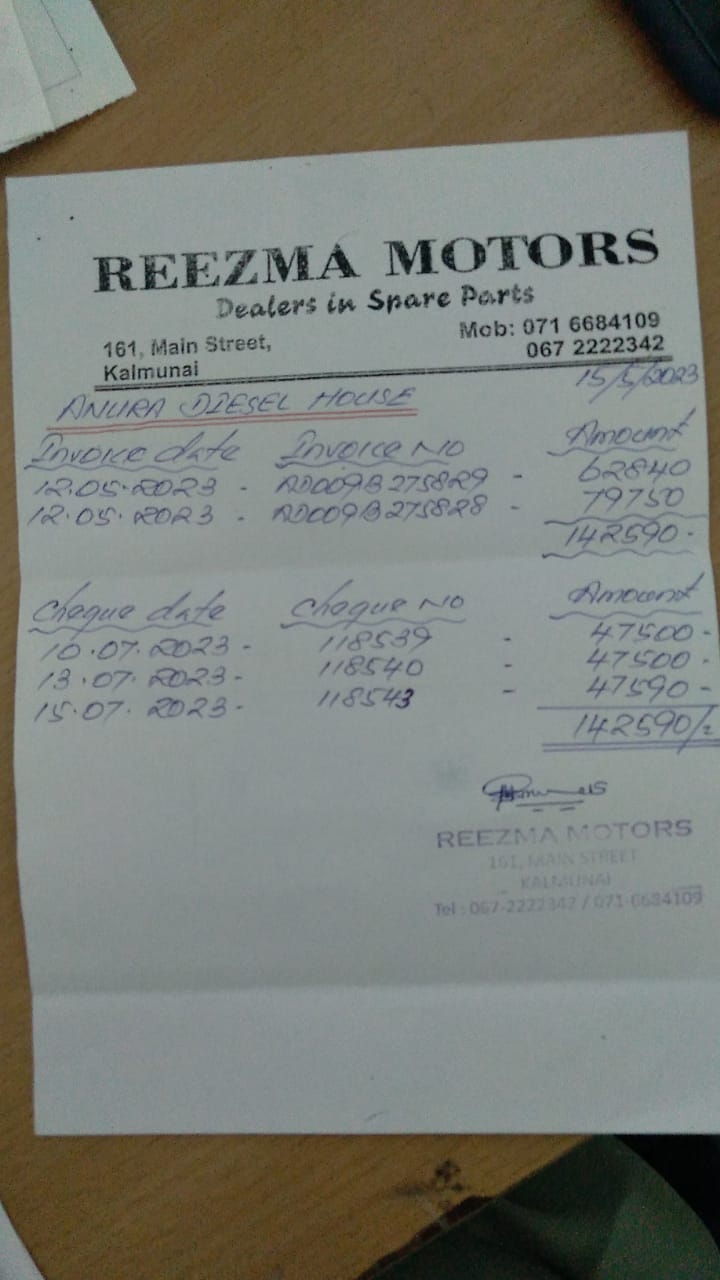 REEZMA MOTORS
Dealers in Spare Parts
161, Main Street, Mob: 071 6684109
Kalmunai 067 2222342
15/5/2023
ANURA DIESEL HOUSE
Invoice date Invoice No Amount
12.05.2023 - AD009B275829 - 62840
12.05.2023 - AD009B275828 - 79750
142590-
Cheque date Cheque No Amount
10.07.2023- 118539 - 47500-
13.07.2023- 118540 - 47500-
15.07.2023- 118543 - 47590-
142590/=
REEZMA MOTORS
161, MAIN STREET
KALMUNAI
Tel : 067-2222342 / 071-6684109